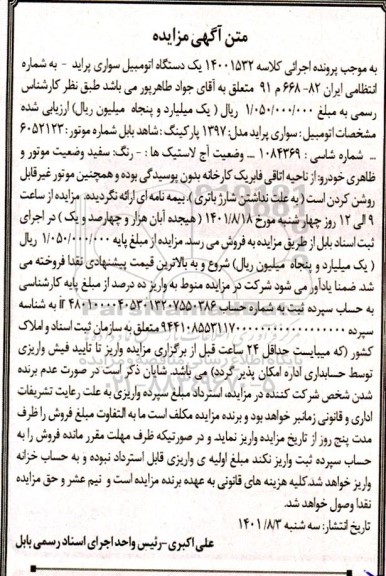 متن آگهی مزایده
به موجب پرونده اجرائی کلاسه ۱۴۰۰۱۵۳۲ یک دستگاه اتومبیل سواری پراید - به شماره
انتظامی ایران ۸۲- ۶۶۸ م ۹۱ متعلق به آقای جواد طاهرپور می باشد طبق نظر کارشناس
رسمی به مبلغ ۱/۰۵۰/۰۰۰/۰۰۰ ریال ( یک میلیارد و پنجاه میلیون ریال) ارزیابی شده
مشخصات اتومبیل : سواری پراید مدل: ۱۳۹۷ پارکینگ : شاهد بابل شماره موتور: ۶۰۵۲۱۲۲
... شماره شاسی : ۱۰۸۴۳۶۹ ... وضعیت آج لاستیک ها : - رنگ: سفید وضعیت موتور و
ظاهری خودرو: از ناحیه اتاقی فابریک کارخانه بدون پوسیدگی بوده و همچنین موتور غیرقابل
روشن کردن است ( به علت نداشتن شارژ باتری ). بیمه نامه ای ارائه نگردیده. مزایده از ساعت
۹ الی ۱۲ روز چهار شنبه مورخ ۱۴۰۱/۸/۱۸ ( هیجده آبان هزار و چهارصد و یک ) در اجرای
ثبت اسناد بابل از طریق مزایده به فروش می رسد. مزایده از مبلغ پایه ۱/۰۵۰/۰۰۰/۰۰۰ ریال
( یک میلیارد و پنجاه میلیون ریال) شروع و به بالاترین قیمت پیشنهادی نقدا فروخته می
شد. ضمنا یادآور می شود شرکت در مزایده منوط به واریز ده درصد از مبلغ پایه کارشناسی
به حساب سپرده ثبت به شماره حساب ir ۴۸۰۱۰۰۰۰۴۰۵۳۰۱۳۲۰۷۵۵۰۳۸۶ به شناسه
سپرده متعلق به سازمان ثبت اسناد و املاک
کشور (که میبایست حداقل ۲۴ ساعت قبل از برگزاری مزایده واریز تا تأیید فیش واریزی
توسط حسابداری اداره امکان پذیر گردد) می باشد. شایان ذکر است در صورت عدم برنده
شدن شخص شرکت کننده در مزایده، استرداد مبلغ سپرده واریزی به علت رعایت تشریفات
اداری و قانونی زمانبر خواهد بود و برنده مزایده مکلف است ما به التفاوت مبلغ فروش را ظرف
مدت پنج روز از تاریخ مزایده واریز نماید. و در صورتیکه ظرف مهلت مقرر مانده فروش را به
حساب سپرده ثبت واریز نکند مبلغ اولیه ی واریزی قابل استرداد نبوده و به حساب خزانه
واریز خواهد شد. کلیه هزینه های قانونی به عهده برنده مزایده است و نیم عشر و حق مزایده
نقدا وصول خواهد شد.
تاریخ انتشار: سه شنبه ۱۴۰۱/۸/۳
علی اکبری - رئیس واحد اجرای اسناد رسمی بابل